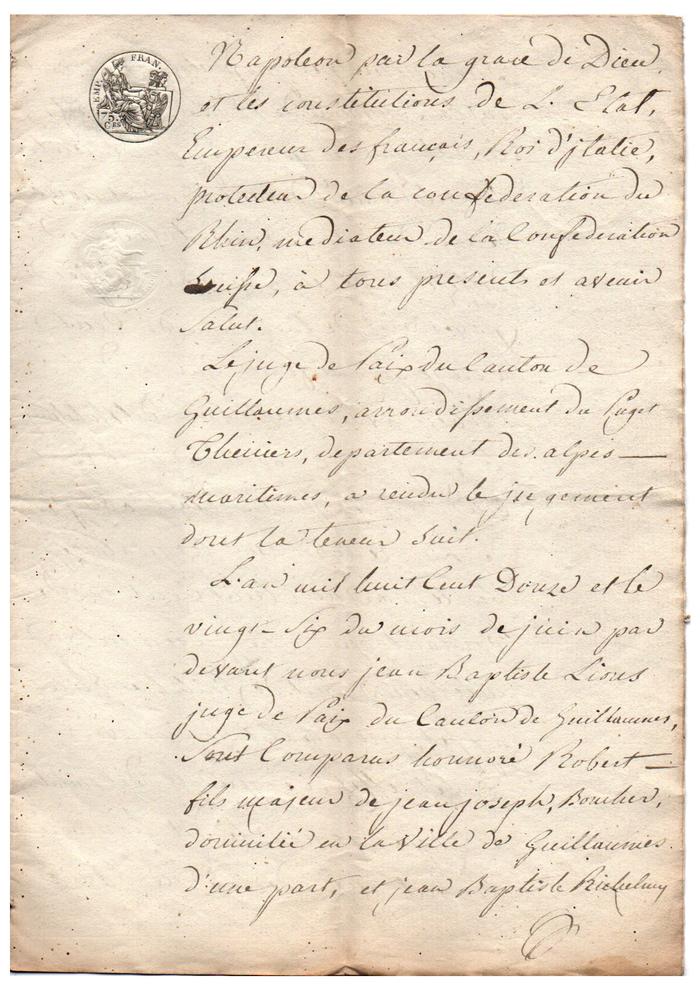 EMP. FRAN.
75.
CES
Napoleon par la grace de Dieu
et les constitutions de L. Etat,
Empereur des français, Roi d'jtalie,
protecteur de la confederation du
Rhin, mediateur de la Confederation
Suisse, à tous presents et avenir
Salut.
Le juge de Paix du Canton de
Guillaumes, arrondissement du Puget
Theniers, departement des alpes —
maritimes, a rendu le jugement
dont la teneur suit.
L'an mil huit Cent Douze et le
vingt-Six du mois de juin par
devant nous jean Baptiste Lions
juge de Paix du Canton de Guillaumes,
Sont Comparus honnoré Robert —
fils majeur de jean joseph, Boucher,
domicilié en la Ville de Guillaumes
d'une part, et jean Baptiste Richelmy